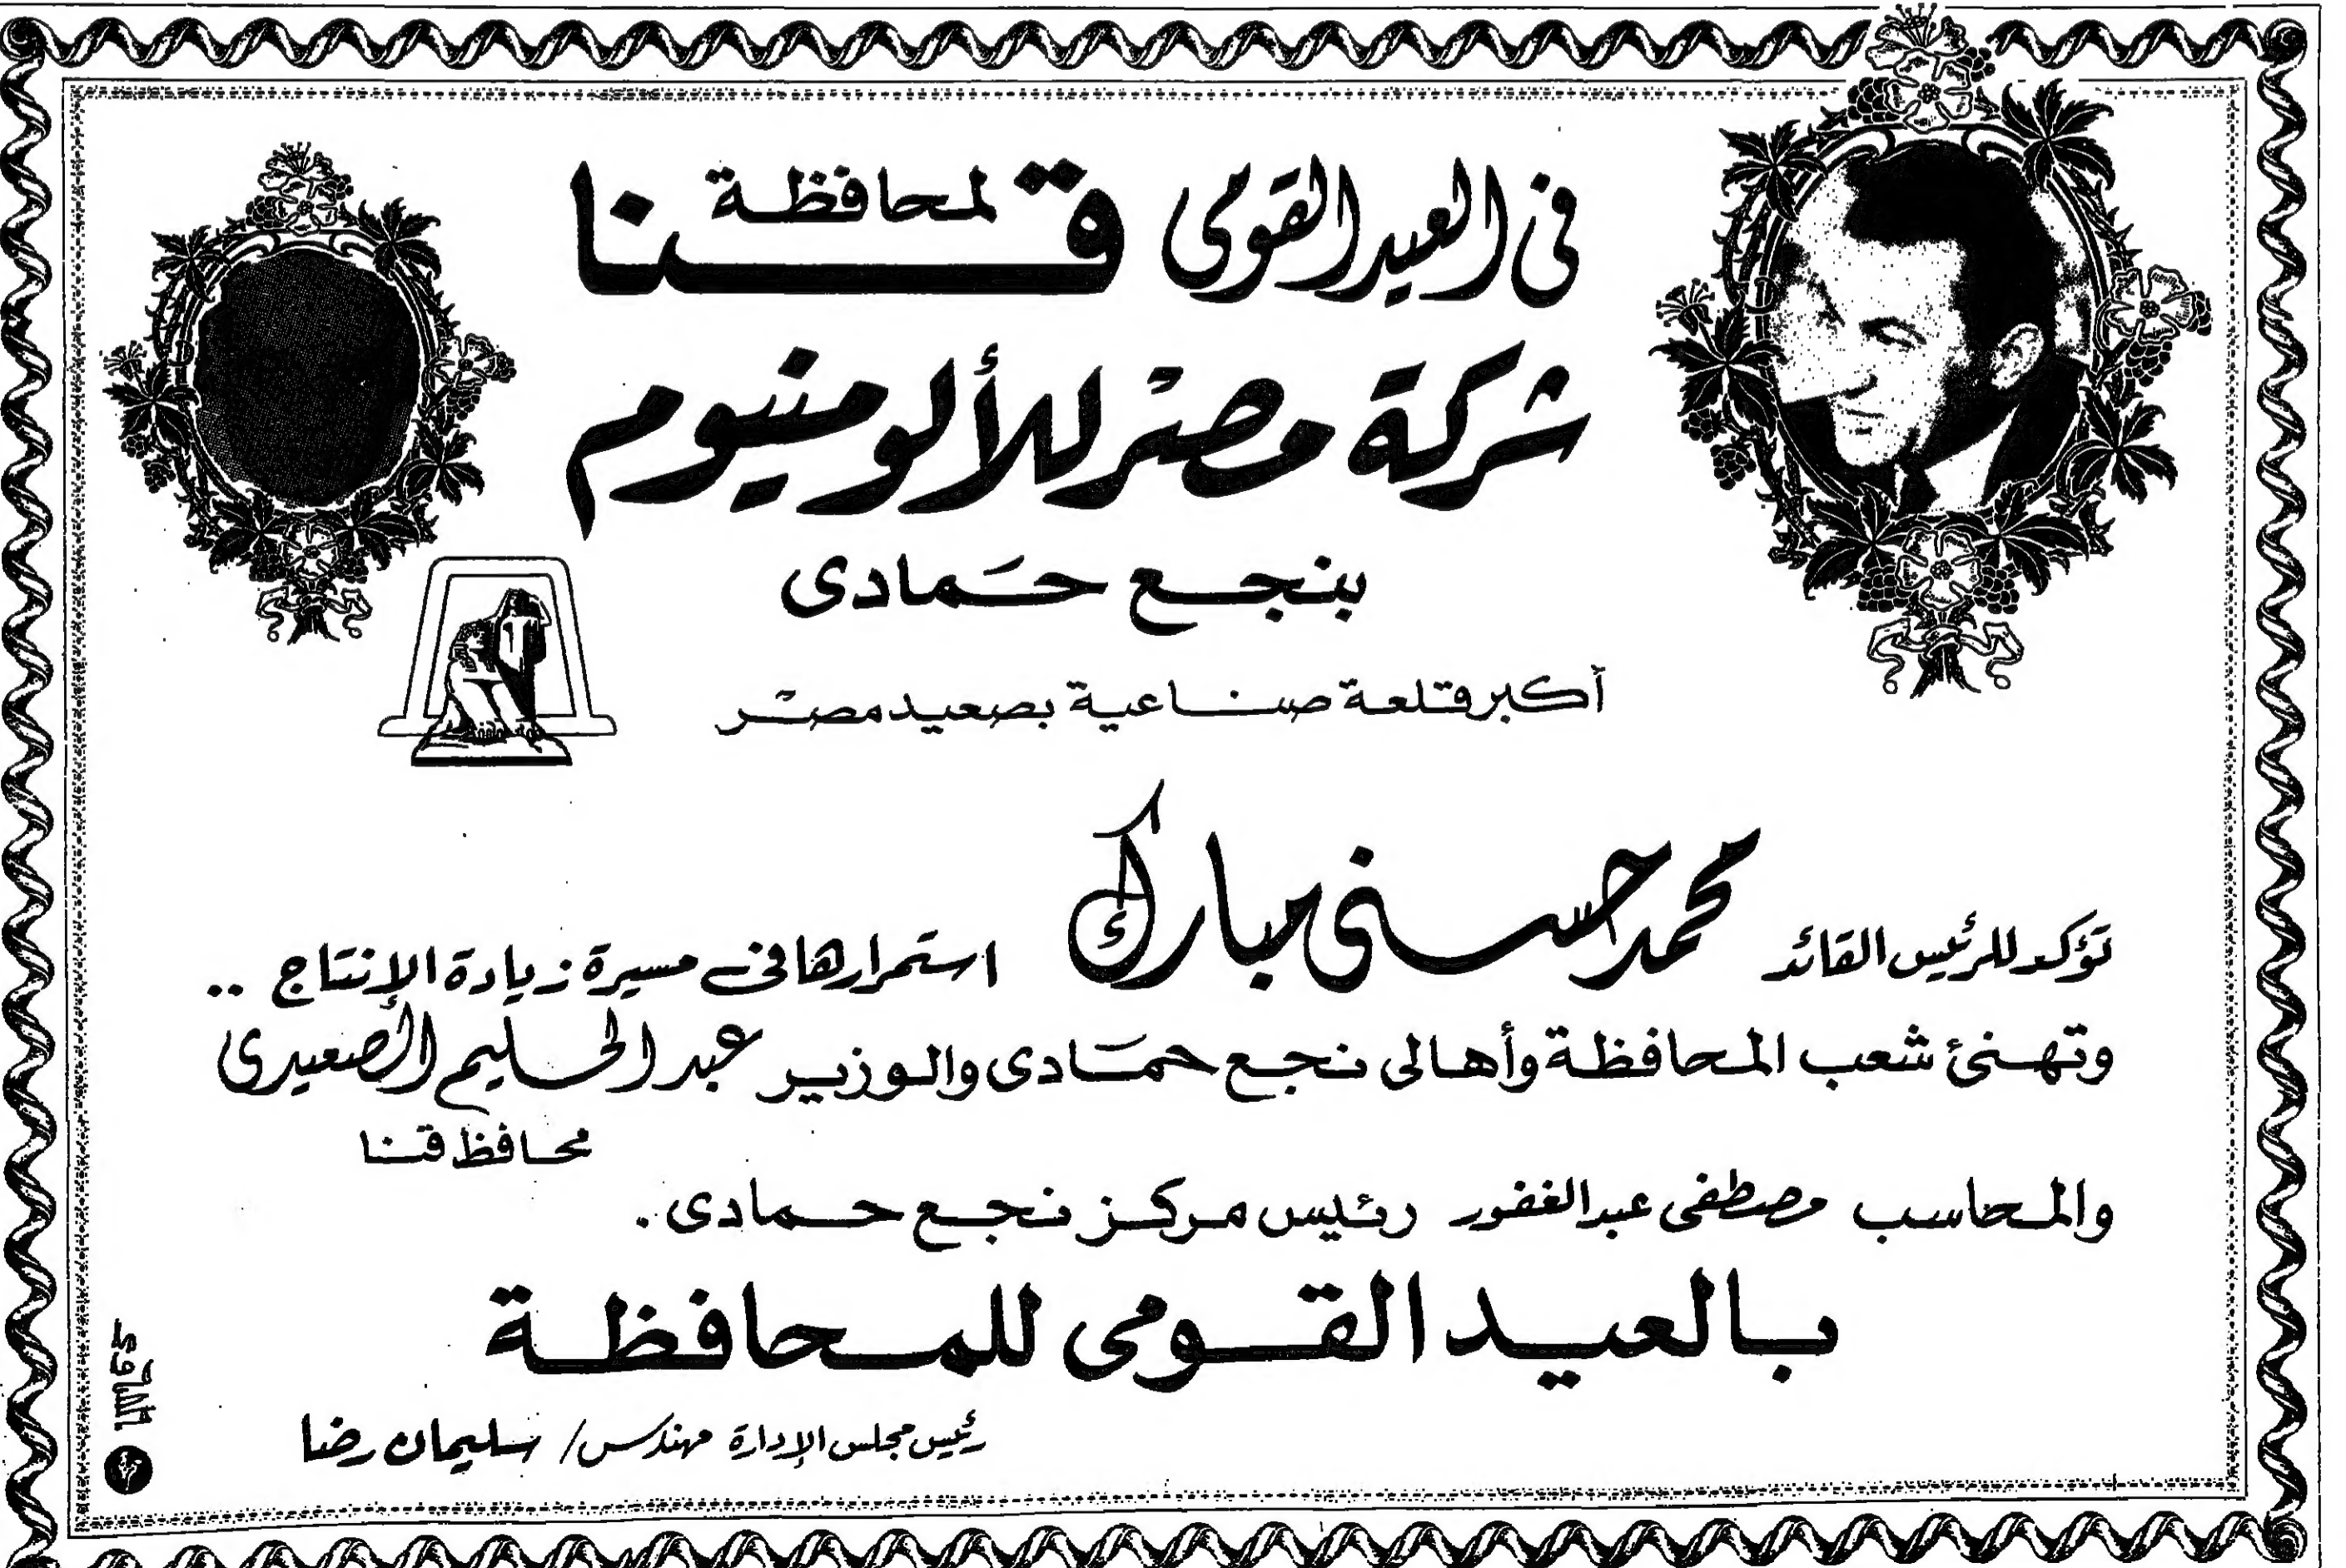 فى العيد القومى لمحافظة قنا
شركة مصر للألومنيوم
بنجع حمادى
أكبر قلعة صناعية بصعيد مصر
تؤكد للرئيس القائد محمد حسنى مبارك استمرارها فى مسيرة زيادة الإنتاج ..
وتهنئ شعب المحافظة وأهالى نجع حمادى والوزير عبد الحليم الصعيدى
محافظ قنا
والمحاسب مصطفى عبد الغفور رئيس مركز نجع حمادى .
بالعيد القومى للمحافظة
رئيس مجلس الإدارة مهندس / سليمان رضا